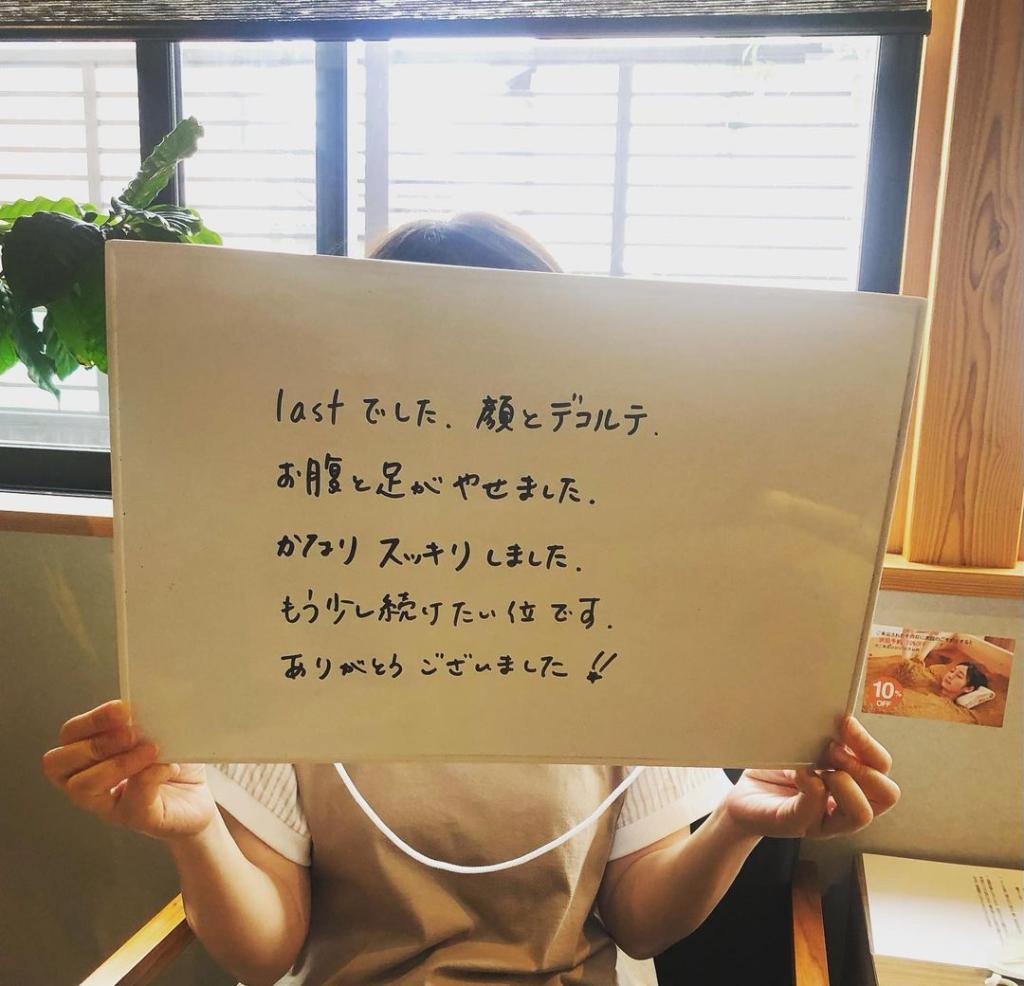 lastでした. 顔とデコルテ.
お腹と足がやせました.
かなりスッキリしました.
もう少し続けたい位です.
ありがとうございました!!
10%
OFF